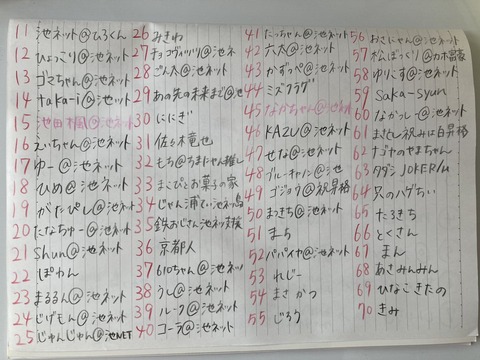 11 池ネット@ひろくん
12 ひょっこり@池ネット
13 ゴマちゃん@池ネット
14 taka-i@池ット
15 池田楓@池ネット
16 えいちゃん@池ネット
17 ゆー@池ネット
18 ひめ@池ネット
19 がたぴし@池ネット
20 たなちゅー@池ネット
21 Shun@池ネット
22 ぽわん
23 まるるん@池ネット
24 じげもん@池ネット
25 じゅんじゅん@池NET
26 みきね
27 チョコヴィッツリ@池ネ
28 ごん太@池ネット
29 あの先の未来まで@池
30 ににぎ
31 佐々木竜也
32 もち@ちまにゃん推し
33 まこぴとお菓子の家
34 じゃん浦てぃ池ネ
35 鉄おじさん池ネッ
36 京都人
37 610ちゃん@池ネッ
38 うし@池ネット
39 ルーク@池ネット
40 コーラ@池ネット
41 たっちゃん@池ネット
42 六太@池ネット
43 かずっぺ@池ネット
44 ミズクラゲ
45 なかちゃん@池ネット
46 KAZU@池ネット
47 せな@池ネット
48 ブルーキャノン@池
49 ゴジョウ@祝昇格
50 まっきち@池ネット
51 まち
52 パパイヤ@池ネット
53 れじー
54 まさかつ
55 じろう
56 おさにゃん@池ネット
57 松ぼっくり@カホ
58 ゆりこす@池ネット
59 Saka-syun
60 ながっしー@池ネット
61 まさとし祝山口昇格
62 ナゴヤのやまちゃん
63 タダシJOKER/u
64 兄のハゲちい
65 たろきち
66 とくさん
67 まん
68 あさみんみん
69 ひなこきたの
70 きみ